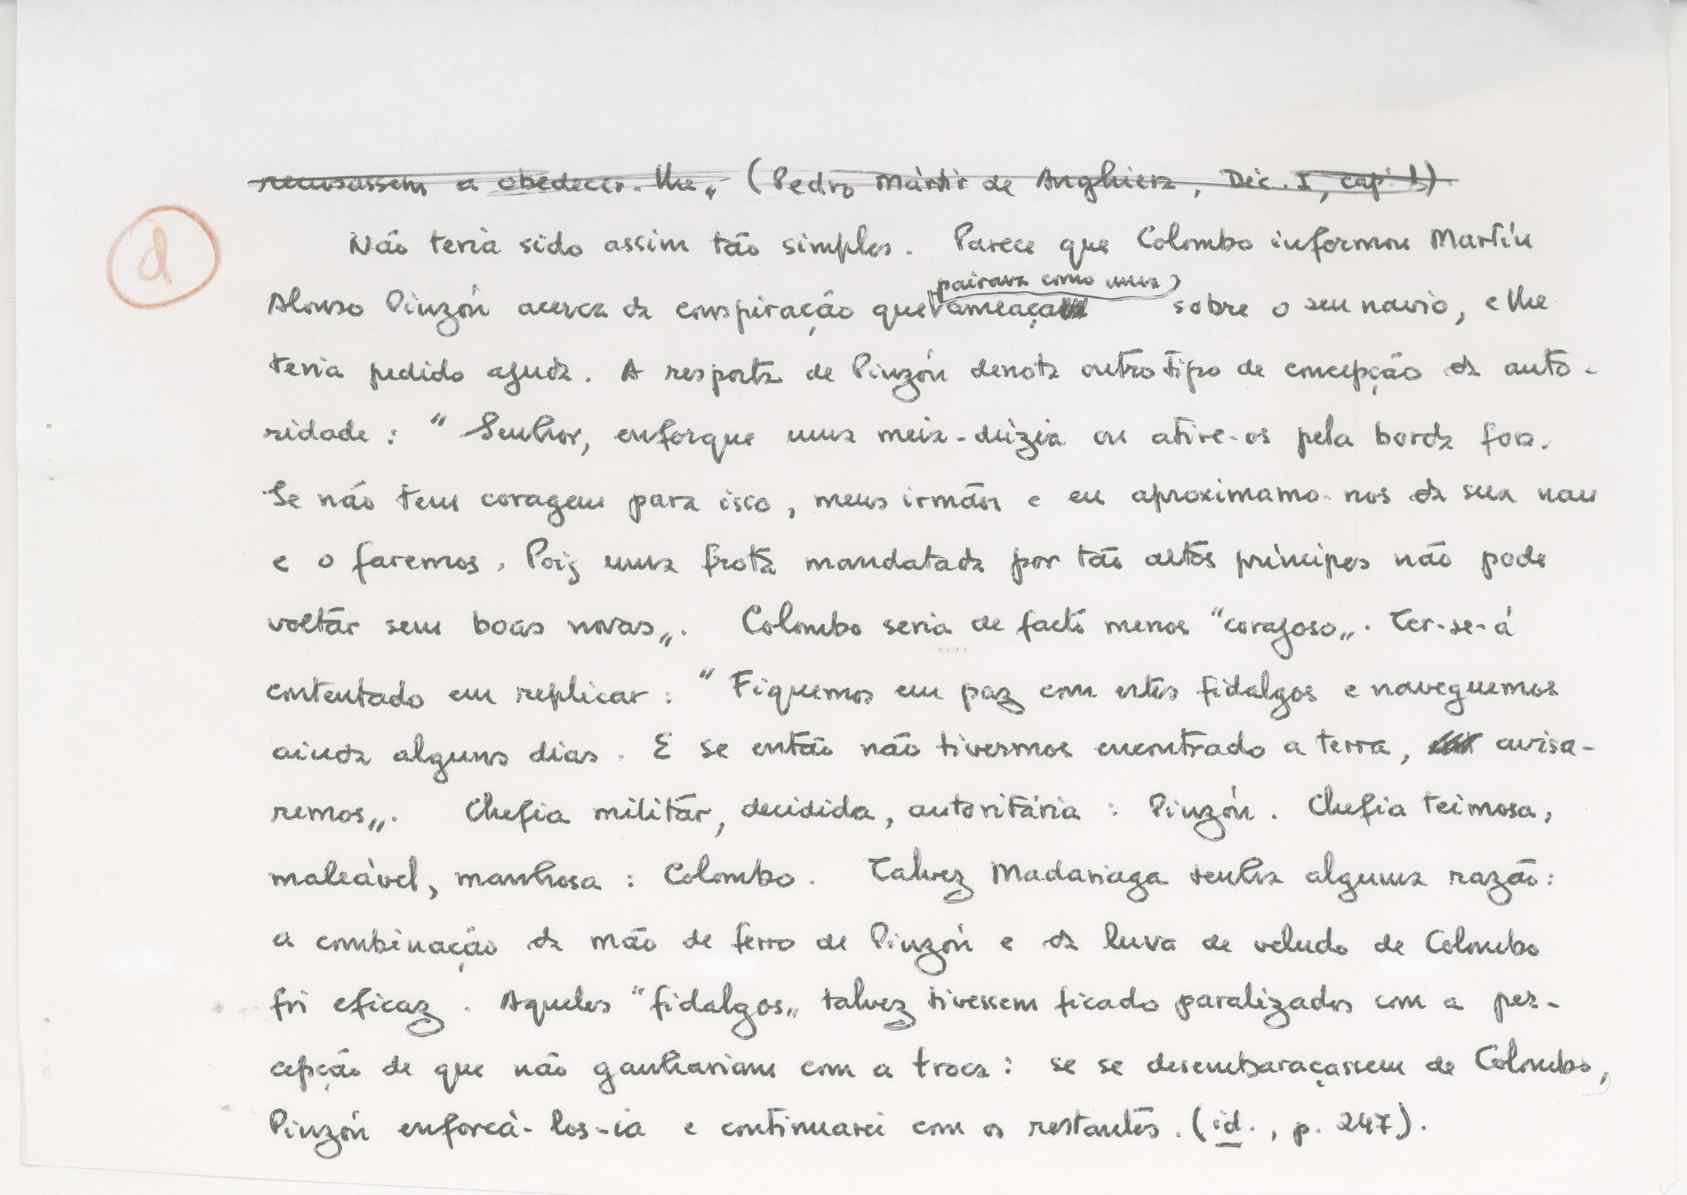 recusassem a obedecer-lhe„ (Pedro Mártir de Anghiera, Déc. I, cap. I)
d
Não teria sido assim tão simples. Parece que Colombo informou Martín
pairava como uma
Alonso Pinzón acerca da conspiração que ameaça sobre o seu navio, e lhe
teria pedido ajuda. A resposta de Pinzón denota outro tipo de concepção da auto-
ridade: "Senhor, enforque uma meia-dúzia ou atire-os pela borda fora.
Se não tem coragem para isso, meus irmãos e eu aproximamo-nos da sua nau
e o faremos. Pois uma frota mandatada por tão altos príncipes não pode
voltar sem boas novas„. Colombo seria de facto menos "corajoso„. Ter-se-á
contentado em replicar: "Fiquemos em paz com estes fidalgos e naveguemos
ainda alguns dias. E se então não tivermos encontrado a terra, avisa-
remos„. Chefia militar, decidida, autoritária: Pinzón. Chefia teimosa,
maleável, manhosa: Colombo. Talvez Madariaga tenha alguma razão:
a combinação da mão de ferro de Pinzón e da luva de veludo de Colombo
foi eficaz. Aqueles "fidalgos„ talvez tivessem ficado paralizados com a per-
cepção de que não ganhariam com a troca: se se desembaraçassem de Colombo,
Pinzón enforcá-los-ia e continuarei com os restantes. (id., p. 247).